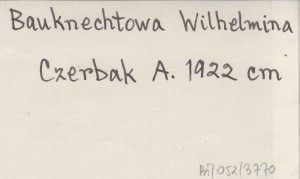 Bauknechtowa Wilhelmina
Czerbak A. 1922 cm
BJ/052/3770